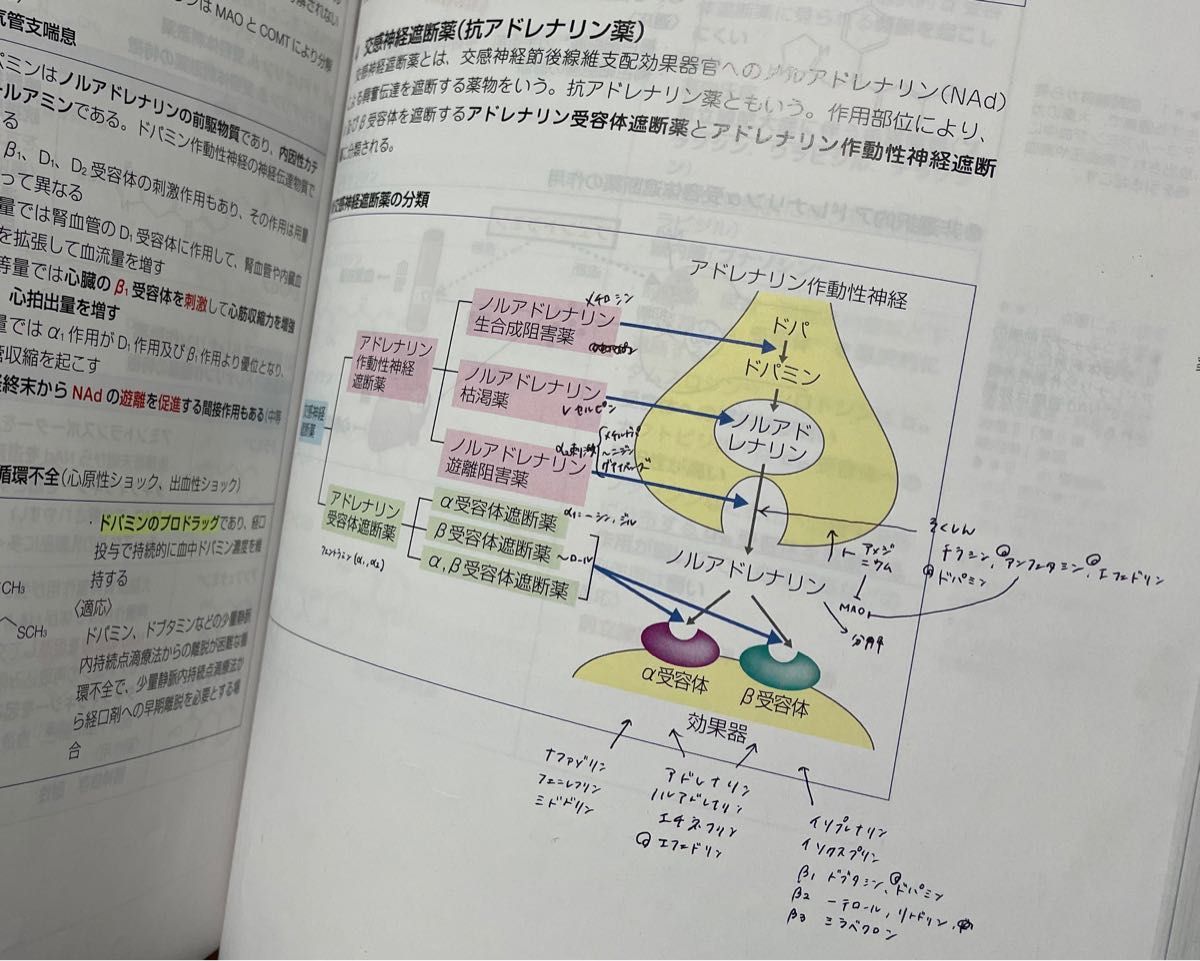 ンは MAO と COMT により分解
気管支喘息
パミンはノルアドレナリンの前駆物質であり、内因性カテ
ールアミンである。ドパミン作動性神経の神経伝達物質で
る
β₁、D₁、D₂ 受容体の刺激作用もあり、その作用は用量
って異なる
量では腎血管の D₁ 受容体に作用して、腎血管や内臓血
を拡張して血流量を増す
等量では心臓の β₁ 受容体を刺激して心筋収縮力を増強
心拍出量を増す
量では α₁ 作用が D₁ 作用及び β₁ 作用より優位となり、
管収縮を起こす
終末から NAd の遊離を促進する間接作用もある(中等
循環不全(心原性ショック、出血性ショック)
・ドパミンのプロドラッグであり、経口
投与で持続的に血中ドパミン濃度を維
持する
〈適応〉
ドパミン、ドブタミンなどの少量静脈
内持続点滴療法からの離脱が困難な循
環不全で、少量静脈内持続点滴療法か
ら経口剤への早期離脱を必要とする場
合
CH₃
SCH₃
交感神経遮断薬(抗アドレナリン薬)
交感神経遮断薬とは、交感神経節後線維支配効果器官へのノルアドレナリン(NAd)
よる興奮伝達を遮断する薬物をいう。抗アドレナリン薬ともいう。作用部位により、
及び β 受容体を遮断するアドレナリン受容体遮断薬とアドレナリン作動性神経遮断
に分類される。
交感神経遮断薬の分類
交感神経
遮断薬
アドレナリン
作動性神経
遮断薬
ノルアドレナリン
生合成阻害薬
メチロシン
ノルアドレナリン
枯渇薬
レセルピン
ノルアドレナリン
遊離阻害薬
α₂刺激
メチルドパ
～ニジン
アドレナリン
受容体遮断薬
フェントラミン(α₁,α₂)
α受容体遮断薬
β受容体遮断薬
～ロール
α,β受容体遮断薬
アドレナリン作動性神経
ドパ
ドパミン
ノルアド
レナリン
ノルアドレナリン
α受容体
β受容体
効果器
そくしん
チラミン、アンフェタミン、エフェドリン
ドパミン
アメジ
ニウム
MAO
分解
ナファゾリン
フェニレフリン
ミドドリン
アドレナリン
ノルアドレナリン
エチレフリン
エフェドリン
イソプレナリン
イソクスプリン
β₁ ドブタミン、ドパミン
β₂ ーテロール,リトドリン,
β₃ ミラベグロン